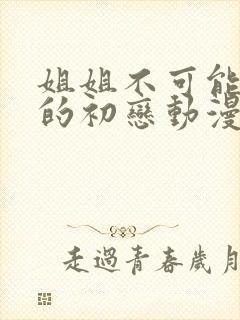 姐姐不可能
的初戀動漫
走過青春歲月